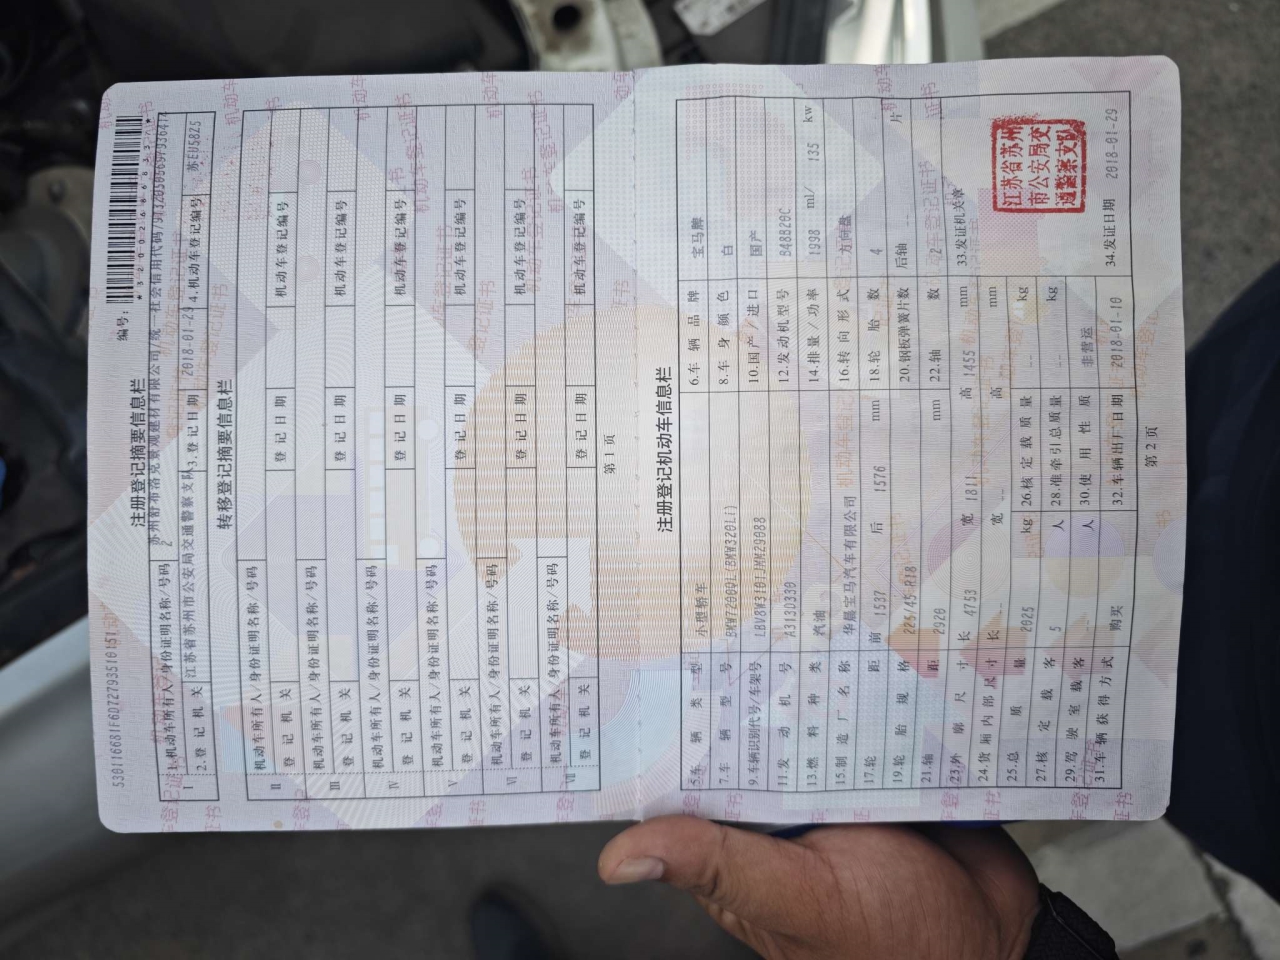 注册登记摘要信息栏
编号:
1.机动车所有人/身份证明名称/号码 苏州舒布洛克景观建材有限公司/统一社会信用代码/
2.登记机关 江苏省苏州市公安局交通警察支队 3.登记日期 2018-01-29 4.机动车登记编号 苏EU58Z5
转移登记摘要信息栏
机动车所有人/身份证明名称/号码
II 登记机关 登记日期 机动车登记编号
机动车所有人/身份证明名称/号码
III 登记机关 登记日期 机动车登记编号
机动车所有人/身份证明名称/号码
IV 登记机关 登记日期 机动车登记编号
机动车所有人/身份证明名称/号码
V 登记机关 登记日期 机动车登记编号
机动车所有人/身份证明名称/号码
VI 登记机关 登记日期 机动车登记编号
机动车所有人/身份证明名称/号码
VII 登记机关 登记日期 机动车登记编号
第 1 页
注册登记机动车信息栏
5.车辆类型 小型轿车 6.车辆品牌 宝马牌
7.车辆型号 BMW7200QL(BMW320Li) 8.车身颜色 白
9.车辆识别代号/车架号 LBV8W3101JMM29088 10.国产/进口 国产
11.发动机号 A313D330 12.发动机型号 B48B20C
13.燃料种类 汽油 14.排量/功率 1998 ml/ 135 kw
15.制造厂名称 华晨宝马汽车有限公司 16.转向形式 方向盘
17.轮距 前 1537 后 1576 mm 18.轮胎数 4
19.轮胎规格 225/45 R18 20.钢板弹簧片数 后轴 片
21.轴距 2920 mm 22.轴数 2
23.外廓尺寸 长 4753 宽 1811 高 1455 mm 33.发证机关章
24.货厢内部尺寸 长 -- 宽 -- 高 -- mm
25.总质量 2025 kg 26.核定载质量 -- kg
27.核定载客 5 人 28.准牵引总质量 -- kg
29.驾驶室载客 -- 人 30.使用性质 非营运
31.车辆获得方式 购买 32.车辆出厂日期 2018-01-10 34.发证日期 2018-01-29
江苏省苏州
市公安局交
通警察支队
第 2 页